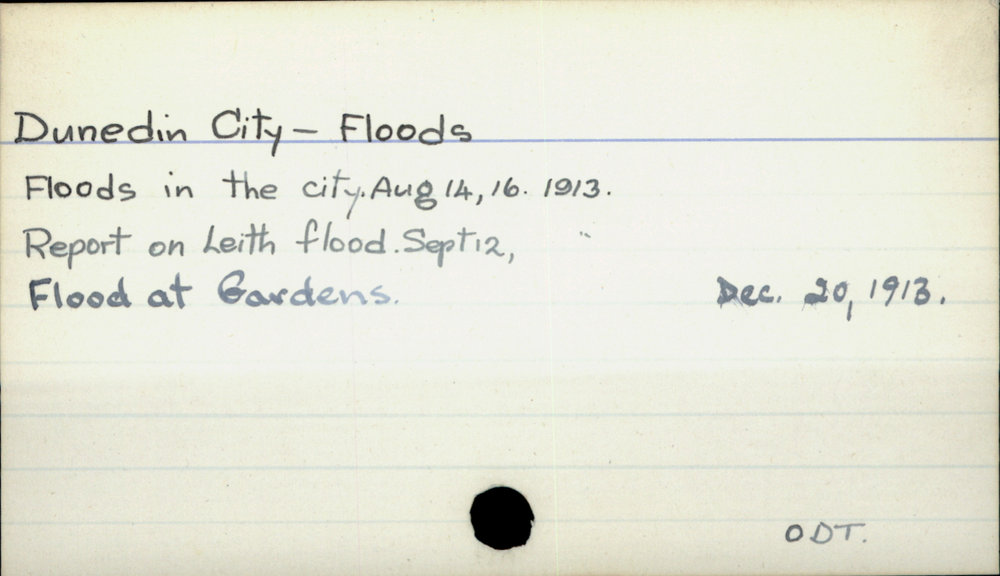 Dunedin City - Floods
Floods in the city. Aug 14, 16. 1913.
Report on Leith flood. Sept 12, "
Flood at Gardens. Dec. 20, 1913.
ODT.